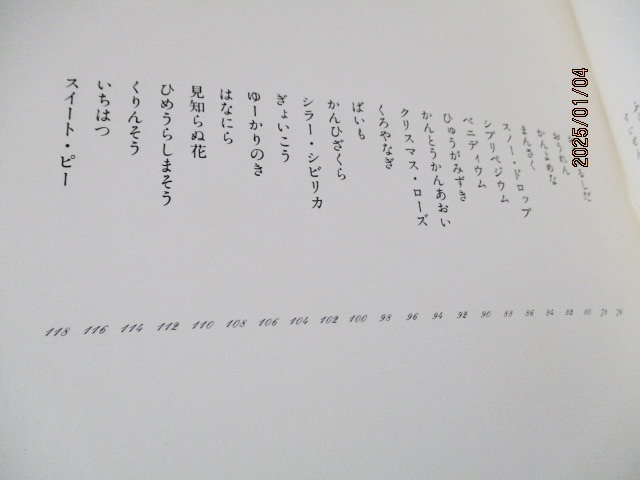 おうれん
かんとめな
まんさく
スノー・ドロップ
シプリペジウム
ベニディウム
ひゅうがみずき
かんとうかんあおい
クリスマス・ローズ
くろやなぎ
ばいも
かんひざくら
シラー・シビリカ
ぎょいこう
ゆーかりのき
はなにら
見知らぬ花
ひめうらしまそう
くりんそう
いちはつ
スイート・ピー
76
78
80
82
84
86
88
90
92
94
96
98
100
102
104
106
108
110
112
114
116
118
2025/01/04